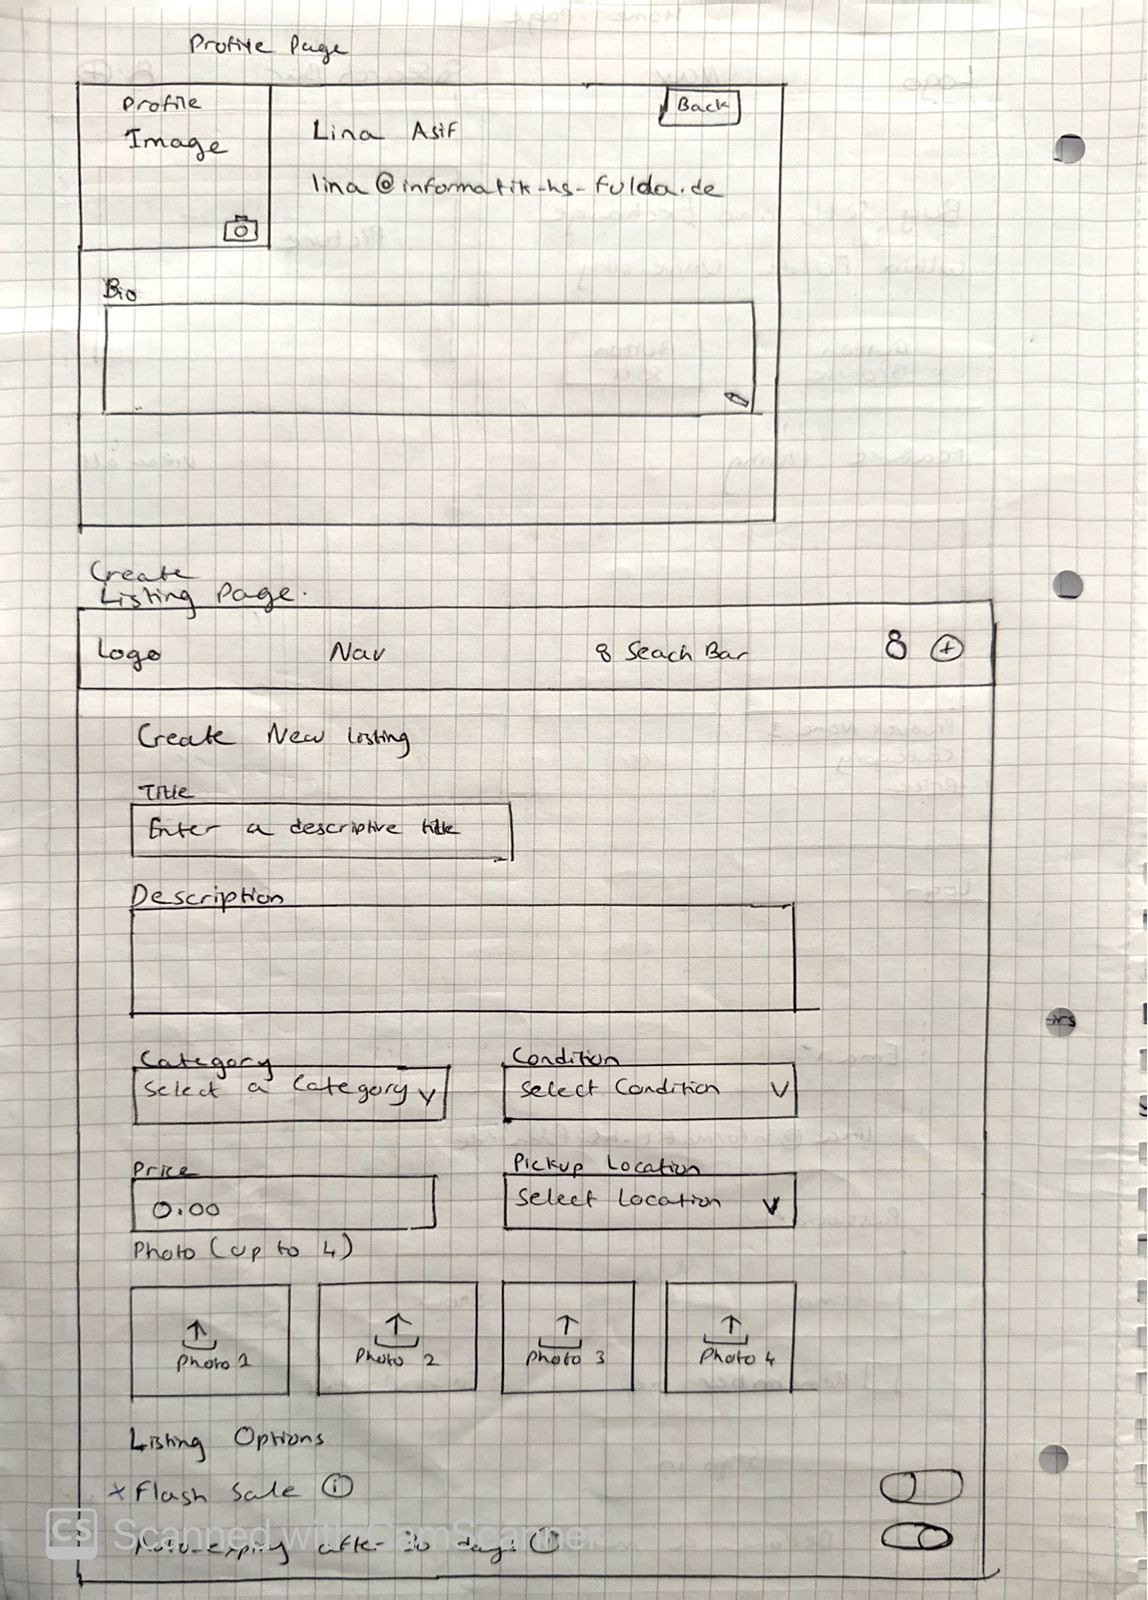 Profile Page
Profile
Image
Back
Lina Asif
lina@informatik-hs-fulda.de
Bio
Create
Listing Page.
Logo
Nav
Seach Bar
Create New Listing
Title
Enter a descriptive title
Description
Category
Select a Category
Condition
Select Condition
Price
0.00
Pickup Location
Select Location
Photo (up to 4)
Photo 1
Photo 2
Photo 3
Photo 4
Listing Options
Flash Sale i
Auto-expiry after 30 days i
CS Scanned with CamScanner